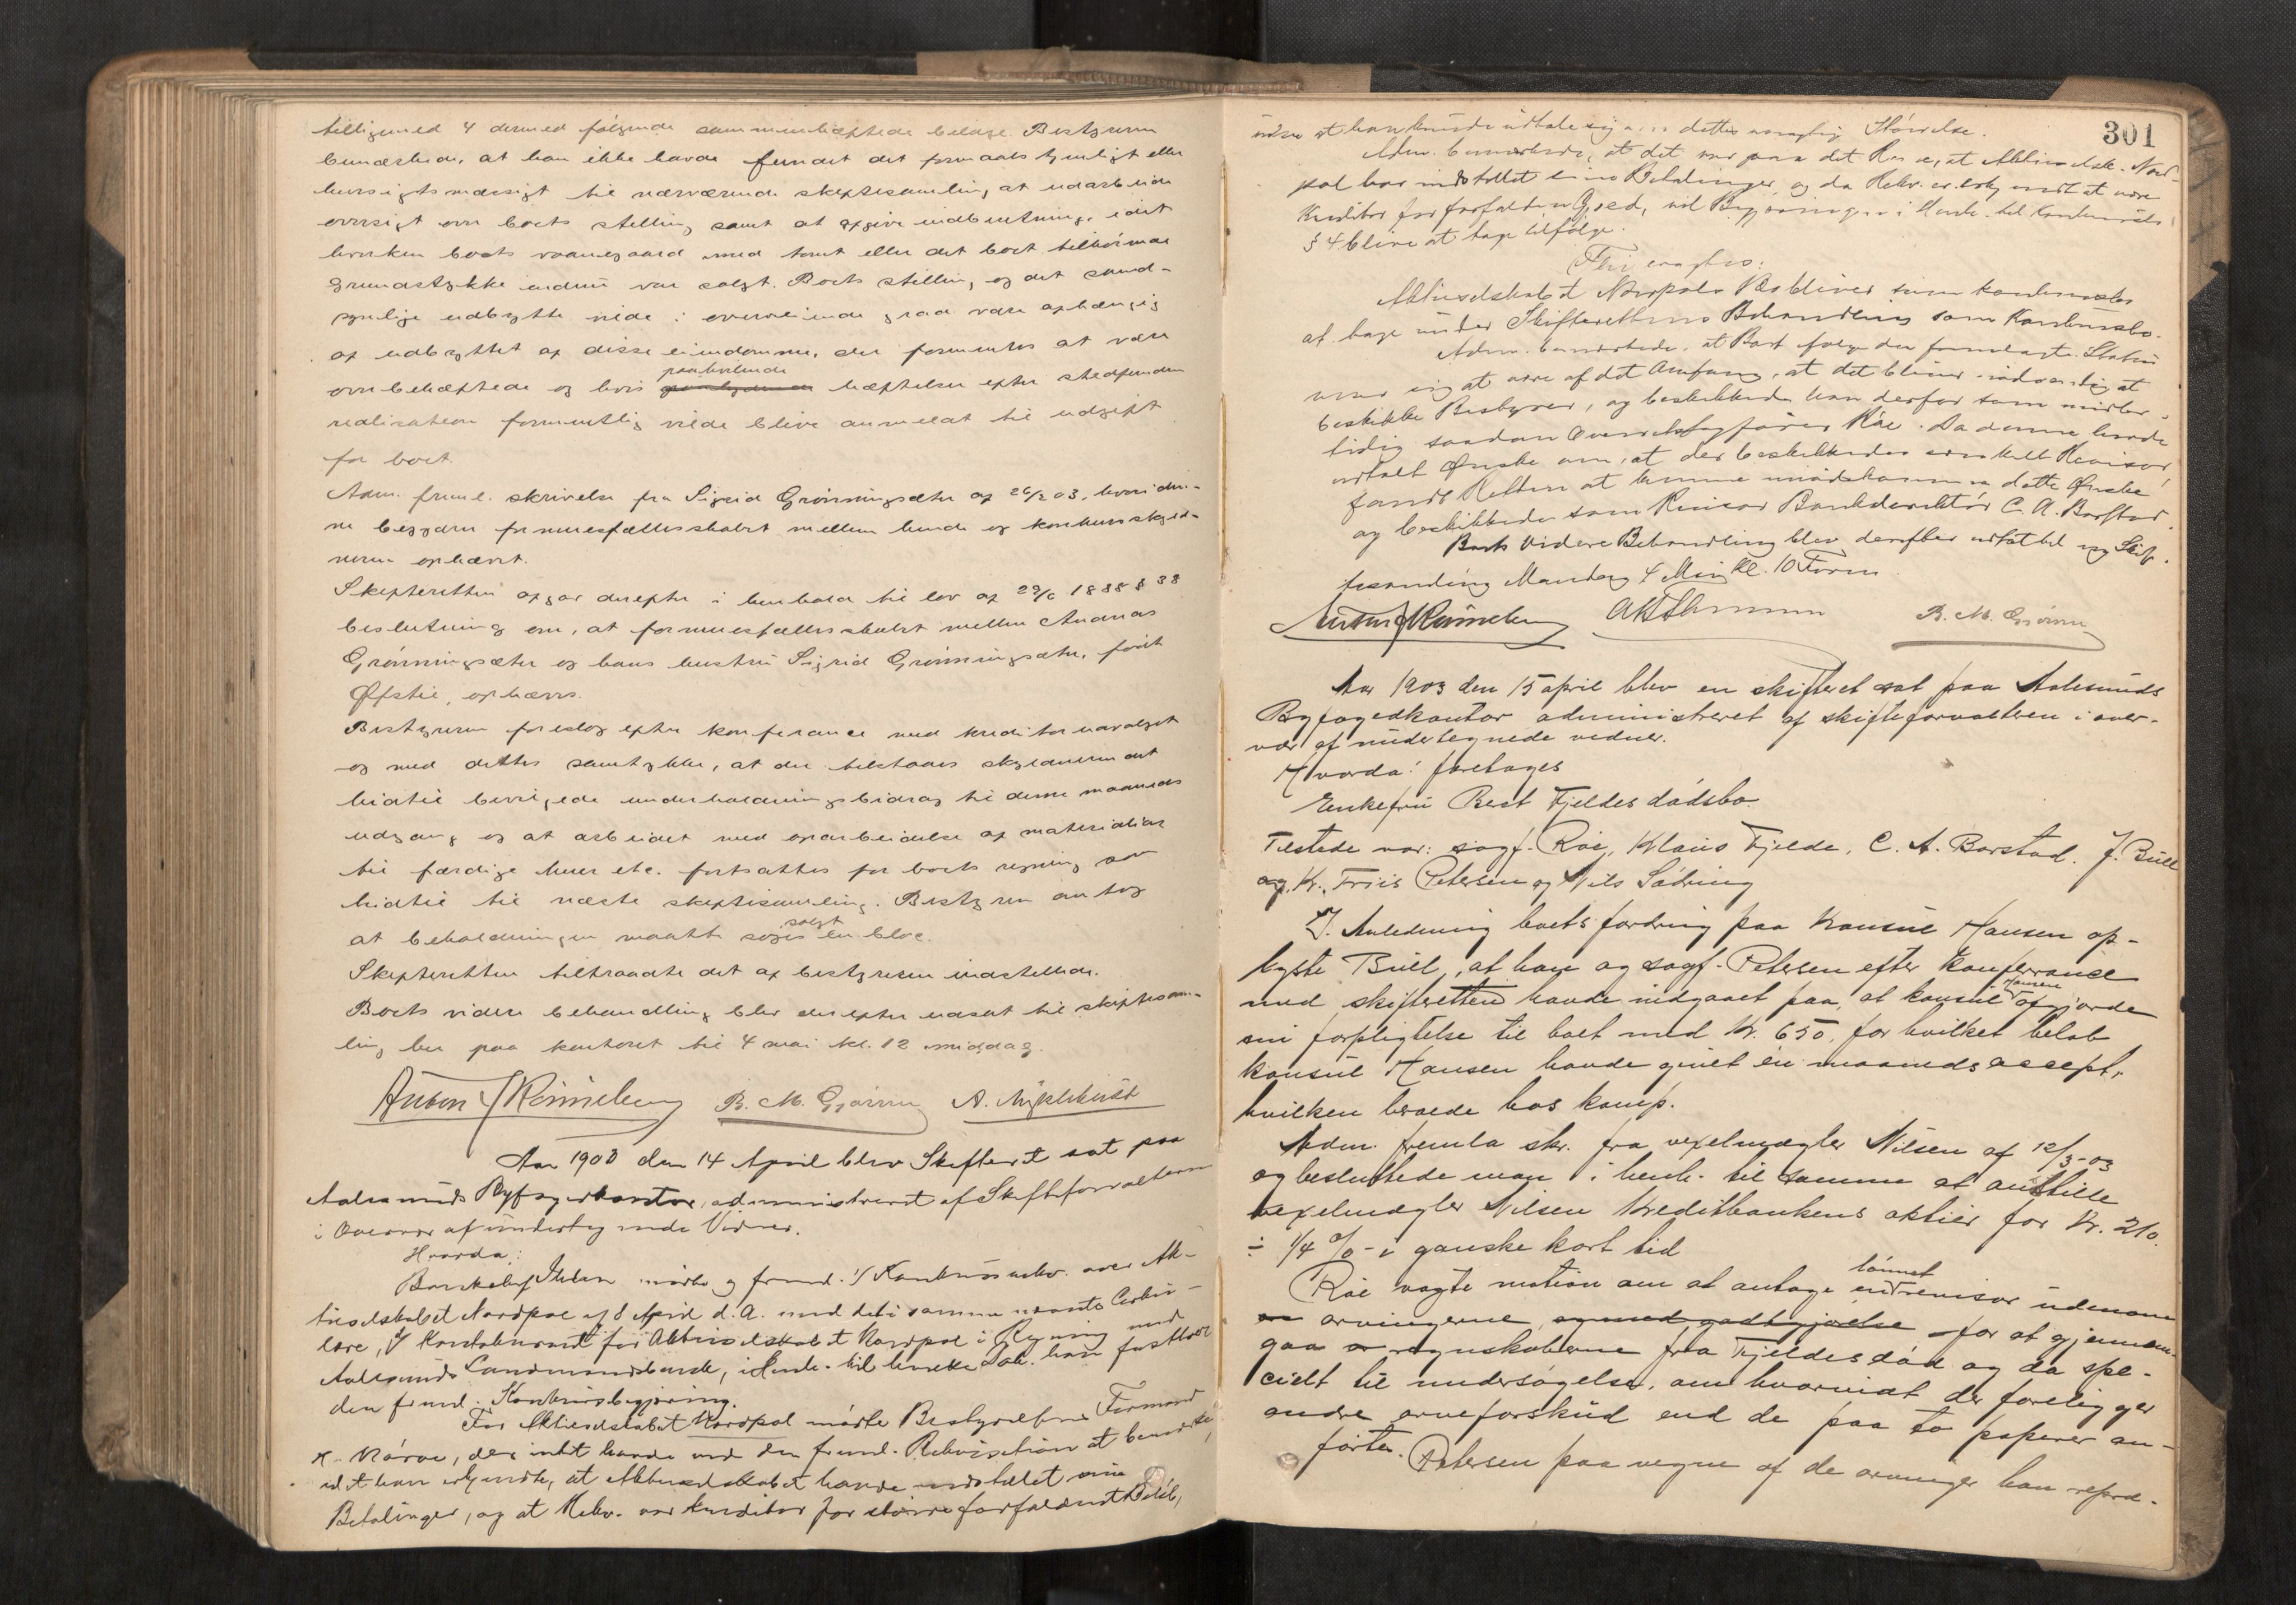 tilligemed 4 dermed følgende sammenheftede bilage. Bestyreren
bemærkede, at han ikke havde fundet det formaalstjenligt eller
hensigtsmæssigt til nærværende skiftesamling at udarbeide
oversigt over boets stilling samt at opgive indberetning, idet
hverken boets vaaningsgaard med tomt eller det boet tilhørende
grundstykke endnu var solgt. Boets stilling og det sand-
synlige udbytte vilde i overveiende grad være afhængig
af udbyttet af disse eiendomme, der formentes at være
overbehæftede og hvis paahvilende hæftelser efter stedfunden
realisation formentlig vilde blive anmeldt til udgift
for boet.
Adm. freml. skrivelse fra Sigrid Grønningsæter af 26/2 03, hvori den-
ne begjærer formuesfællesskabet mellem hende og konkursskyld-
neren ophævet.
Skifteretten afgav derefter i henhold til lov af 29/6 1888 § 38
beslutning om, at formuesfællesskabet mellem Andreas
Grønningsæter og hans hustru Sigrid Grønningsæter, født
Øfstie, ophæves.
Bestyreren foreslog efter konferance med kreditorudvalget
og med dettes samtykke, at der tilstaaes skyldneren det
hidtil bevilgede underholdningsbidrag til denne maaneds
udgang og at arbeidet med oparbeidelse af materialier
til færdige huer etc. fortsattes for boets regning som
hidtil til næste skiftesamling. Bestyreren antog
at beholdningen maatte søges solgt en bloc.
Skifteretten tiltraadte det af bestyreren indstillede.
Boets videre behandling blev derefter udsat til skiftesam-
ling her paa kontoret til 4 mai kl. 12 middag.
Anton J Rønneberg R. M. Gjørven A.
Aar 1903 den 14 April blev Skifteret sat paa
Aalesunds Byfogedkontor, administreret af Skifteforvalteren
i Overvær af undertegnede Vidner.
Hvorda:
Bankchef Thesen mødte og freml. 1/ Konkursrekv. over Ak-
tieselskabet Nordpol af 8 April d. A. med deri samme nævnte
lære, 2/ Kontokurant for Aktieselskabet Nordpol i Regning med
Aalesunds Landmandsbank, i Henh. til hvilke Dok. han fastholdt
den freml. Konkursbegjæring.
For Aktieselskabet Nordpol mødte Bestyrelsens Formand
K. Nørve, der intet havde ved den freml. Rekvisition at bemærke,
idet han erkjendte, at Aktieselskabet havde indstillet sine
Betalinger, og at Rekv. var kreditor for større forfaldent Beløb,
301
uden at han kunde udtale sig om dettes nøiagtige Størrelse.
Adm. bemærkede, at det var paa det Rene, at Aktieselsk. Nord-
pol har indstillet sine Betalinger, og da Rekv. er erkjendt at være
Kreditor for forfalden Gjæld, vil Begjæringen i Henh. til Konkurslov.
§ 4 blive at tage tilfølge.
Thi eragtes:
Aktieselskabet Nordpols Bo bliver som konkursbo
at tage under Skifterettens Behandling som Konkursbo.
Adm. bemærkede, at Boet efter den fremlagte Status
viser sig at være af det Omfang, at det bliver nødvendig at
beskikke Bestyrer, og beskikkede han derfor som midler-
tidig saadan Overretssagfører Råe. Da denne havde
udtalt Ønske om, at der beskikkedes særskilt Revisor,
fandt Retten at kunne imødekomme dette Ønske
og beskikkede som Revisor Bankdirektør C. A. Barstad.
Boets videre Behandling blev derefter udsat til ny Skif-
tesamling Mandag 4 Mai Kl. 10 Form.
Anton J Rønneberg R. M. Gjørven
Aar 1903 den 15 april blev en skifteret sat paa Aalesunds
Byfogedkontor administreret af skifteforvalteren i over-
vær af undertegnede vidner.
Hvorda: foretages
Enkefru Berit Fjeldes dødsbo.
Tilstede var: sagf. Råe, Klaus Fjelde, C. A. Barstad. J. Büll
og Kr. Friis Petersen og Nils Sætring
I Anledning boets fordring paa konsul Hansen op-
lyste Büll, at han og sagf. Petersen efter konferrance
med skifteretten havde indgaaet paa, at konsul Hansen afgjorde
sin forpligtelse til boet med Kr. 650, for hvilket beløb
konsul Hansen havde givet en maaneds accept,
hvilken beroede hos komp.
Adm. fremla skr. fra vexelmægler Nilsen af 12/3-03
og besluttede man i henh. til samme at anstille
vexelmægler Nilsen Kreditbankens aktier for Kr. 210.
÷ 1/4 % i ganske kort tid
Råe vagte motion om at antage en lønnet revisor udenom
arvingerne, og med godtgjørelse for at gjennem-
gaa regnskaberne fra Fjeldes død og da spe-
cielt til undersøgelse, om hvorvidt der foreligger
andre arveforskud end de paa to paperer an-
førte. Petersen paa vegne af de arvinger han repræ-